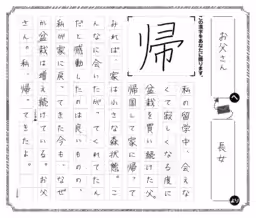 お父さん
へ
長女
より
この漢字をあなたに贈ります。
帰
私の留学中、会えな
くて寂しくなる度に
盆栽を買い続けた父。
帰国して家に帰って
みれば、家は小さな森状態。こ
んなに会いたがってくれてたん
だと感動したのは良いものの、
私が家に戻ってきた今も、なぜ
か盆栽は増え続けている。お父
さん。私、帰ってきたよ。